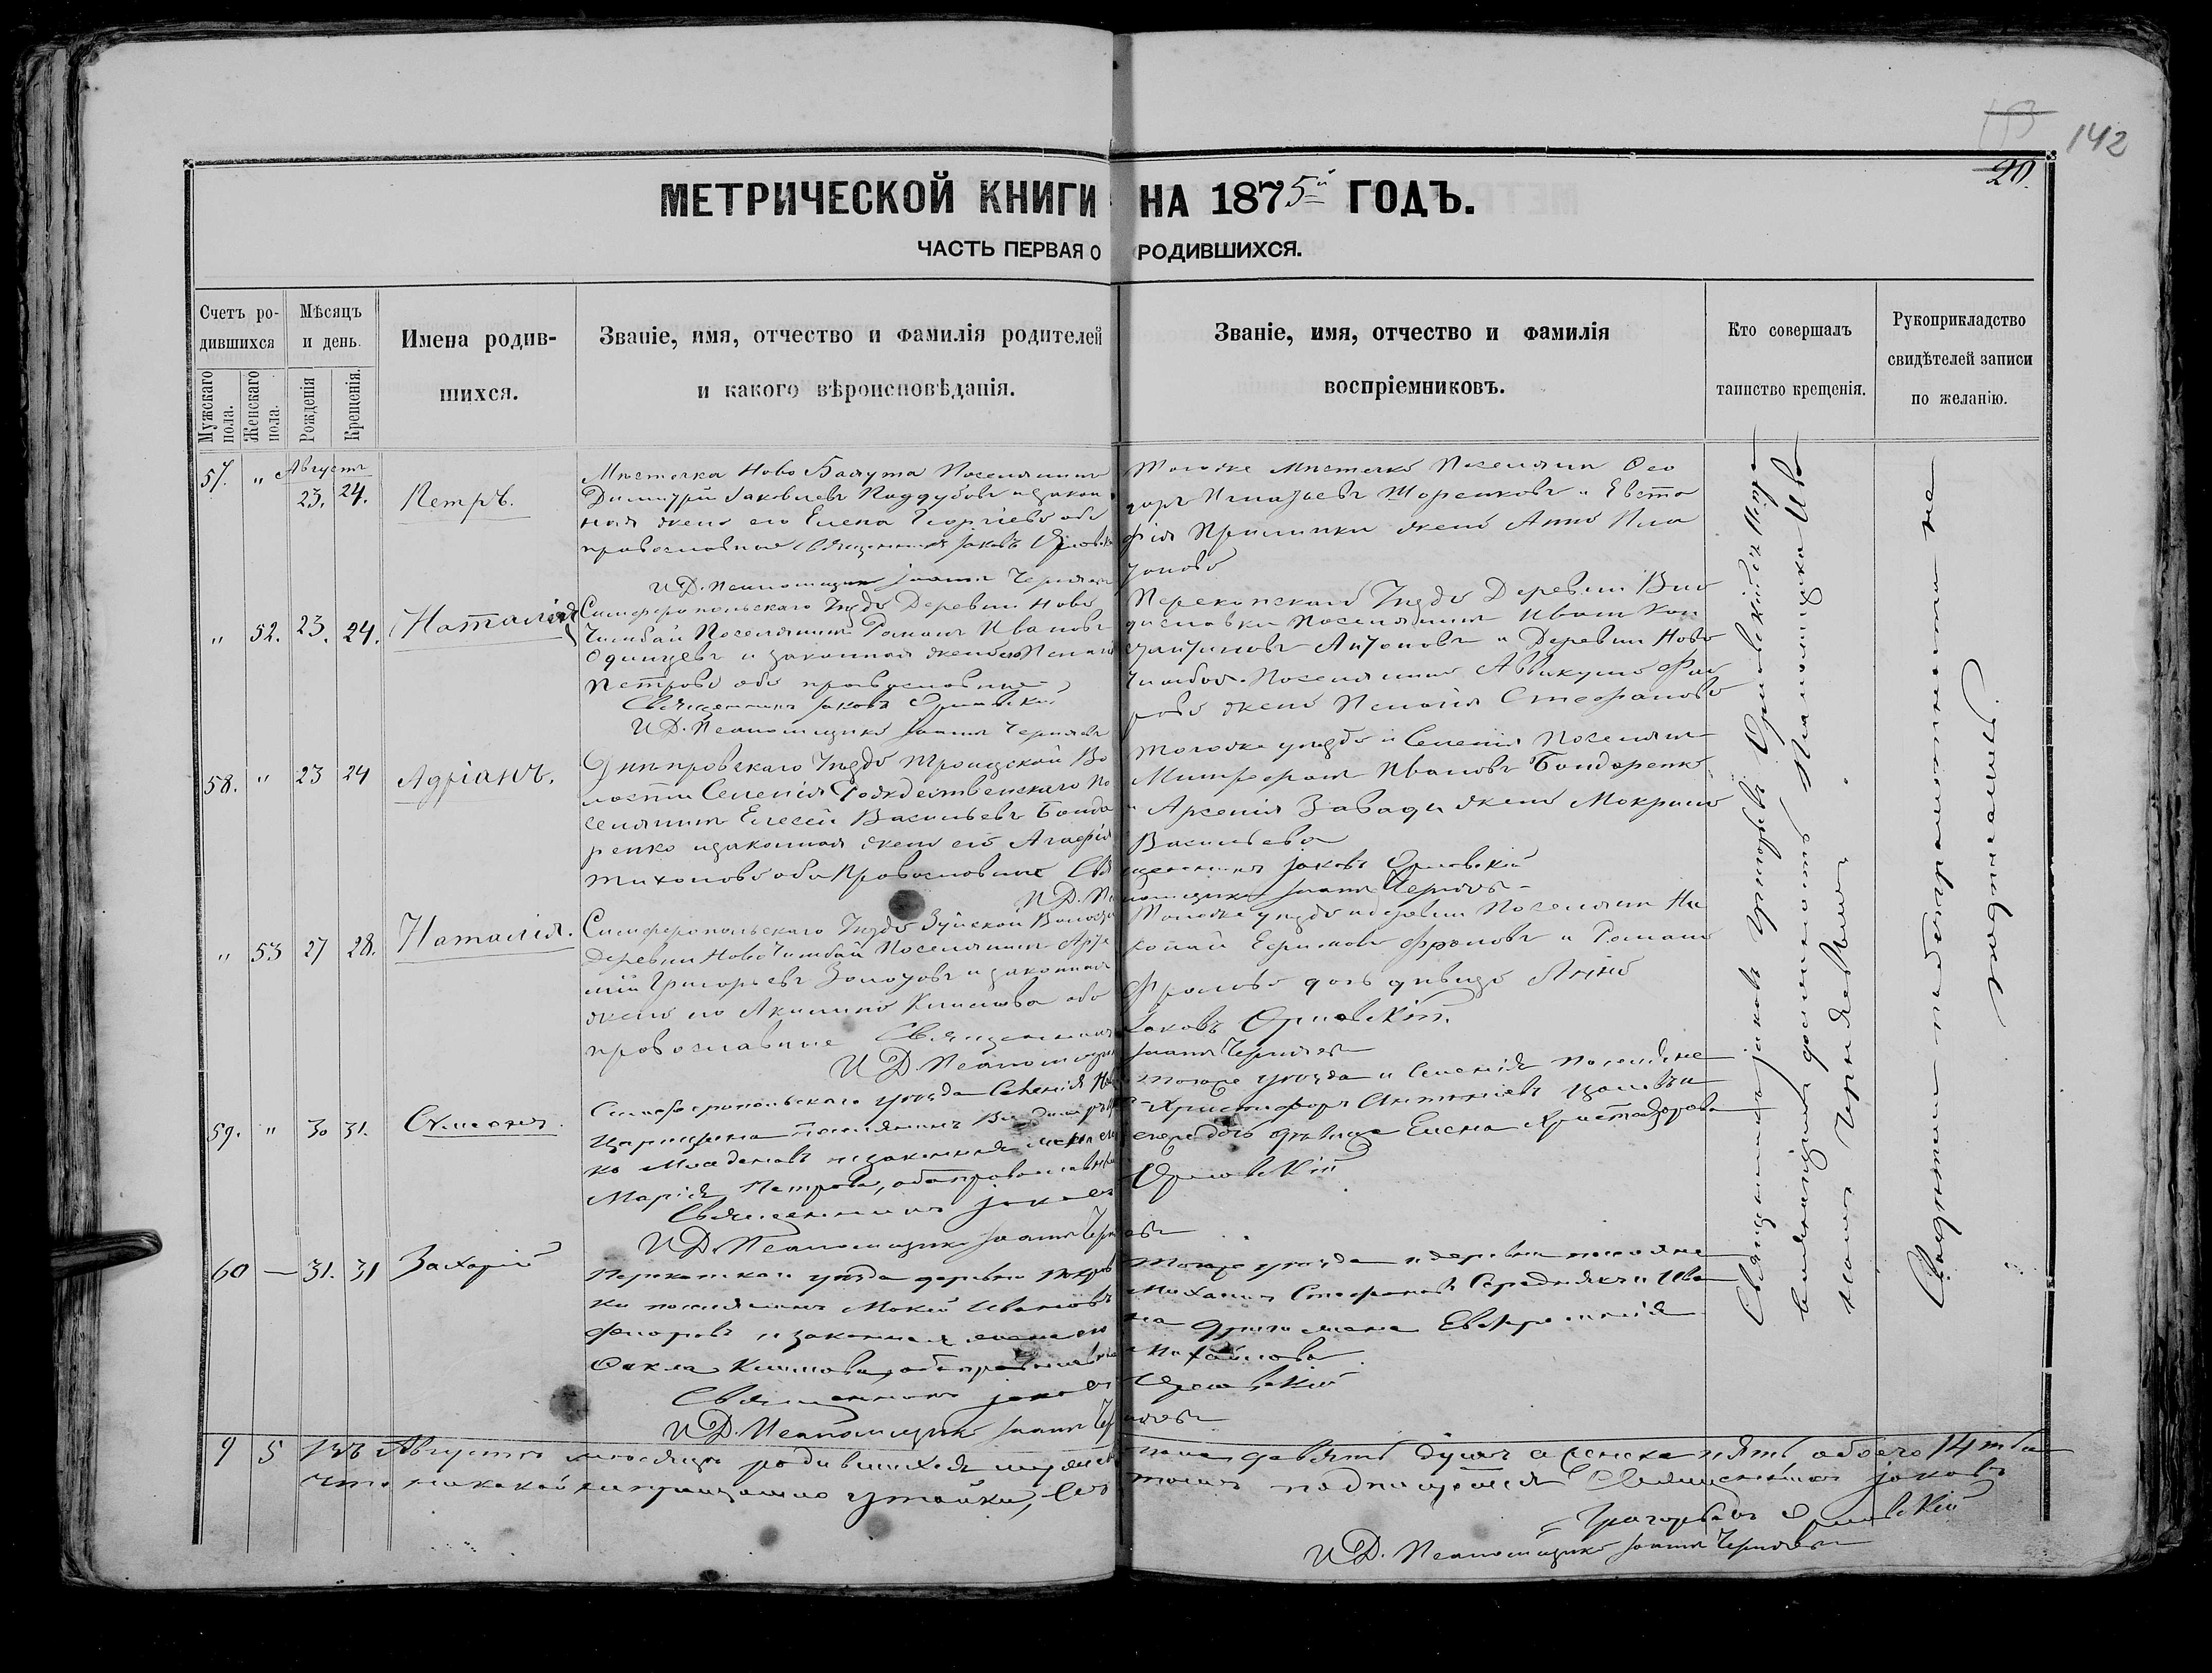 142
20.
МЕТРИЧЕСКОЙ КНИГИ НА 1875й ГОДЪ.
ЧАСТЬ ПЕРВАЯ О РОДИВШИХСЯ.
Счетъ ро-
дившихся
Мужскаго пола.
Женскаго пола.
Мѣсяцъ
и день.
Рожденія
Крещенія.
Имена родив-
шихся.
Званіе, имя, отчество и фамилія родителей
и какого вѣроисповѣданія.
Званіе, имя, отчество и фамилія
воспріемниковъ.
Кто совершалъ
таинство крещенія.
Рукоприкладство
свидѣтелей записи
по желанію.
57. " Августъ 23. 24. Петръ.
Мѣстечка Ново Поселянинъ
Димитрій Яковлевъ Поддубовъ и закон
ная жена его Елена Георгіева оба
православные Священникъ Іаковъ Орловскій
И.Д. Псаломщика Іоаннъ Чернявъ
Тогоже Мѣстечка Поселянин Фео
доръ Игнатьевъ и Евста
фія жена Анна Пла
тонова
" 52. 23. 24. Наталія
Симферопольскаго Уѣзда Деревни Ново
Чембай Поселянинъ Романъ Ивановъ
Одинцевъ и законная жена его Пелагія
Петрова оба православные
Священникъ Іаковъ Орловскій
И.Д. Псаломщика Іоаннъ Чернявъ
Перекопскаго Уѣзда Деревни Вла
диславки Поселянинъ Иванъ Кон
стантиновъ Антоновъ и Деревни Ново
Чембая Поселянина Аввакума Фро
лова жена Пелагія Стефанова
58. " 23 24 Адріанъ.
Днѣпровскаго Уѣзда Троицкой Во
лости Селенія Рождественскаго По
селянинъ Елесей Васильевъ Бонда
ренко и законная жена его Агафія
Тихонова оба Православные Священникъ Іаковъ Орловскій
И.Д. Псаломщика Іоаннъ Чернявъ
Тогоже уѣзда и Селенія Поселянин
Митрофанъ Ивановъ Бондаренко
и Арсенія Завады жена Мокрина
Васильева
" 53 27 28. Наталія.
Симферопольскаго Уѣзда Зуйской Волости
Деревни Ново Чембай Поселянинъ Арте
мій Григорьевъ Золотовъ и законная
жена его Акилина Климова оба
православные Священникъ Іаковъ Орловскій.
И.Д. Псаломщика Іоаннъ Чернявъ
Тогоже уѣзда и деревни Поселянин Ни
колай Ефимовъ Фроловъ и Романа
Фролова дочь дѣвица Анна
59. " 30 31. Сѵмеонъ.
Симферопольскаго уѣзда Селенія Ново
Царицына поселянинъ
и законная жена его
Марія Петрова, оба православные
Священникъ Іаковъ Орловскій
И.Д. Псаломщика Іоаннъ Чернявъ
Тогоже уѣзда и Селенія поселяне
Христофоръ Антоніевъ
его дочь дѣвица Елена Христофорова
60 — 31. 31 Захарій
Перекопскаго уѣзда деревни Покров
ки поселянинъ Мокій Ивановъ
и законная жена его
Фекла Климова, оба православные
Священникъ Іаковъ Орловскій
И.Д. Псаломщика Іоаннъ Чернявъ
Тогоже уѣзда и деревни поселяне
Михаилъ Стефановъ Середнякъ и Ива
на жена Евфросинія
Михайлова
Священникъ Іаковъ Григорьевъ Орловскій
исправляющій должность Псаломщика
Свидѣтели неграмотны
9 5 Въ Августѣ мѣсяцѣ родившихся мужеска пола девять душъ а женска пять обоего 14 ть а
что никакой утайки, въ томъ подписуемся Священникъ Іаковъ
Григорьевъ Орловскій
И.Д. Псаломщика Іоаннъ Чернявъ